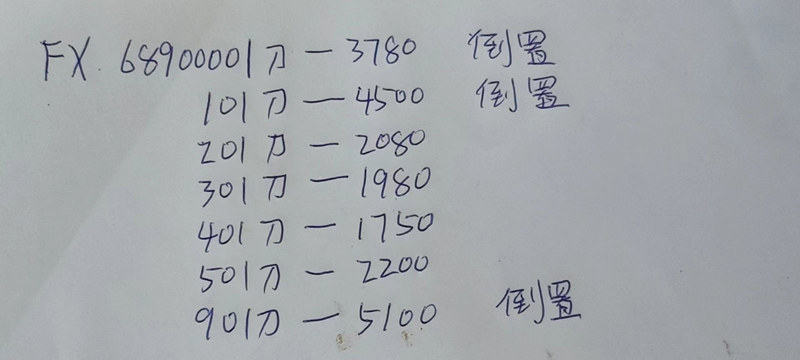 FX.68900001刀—3780 倒置
101刀—4500 倒置
201刀—2080
301刀—1980
401刀—1750
501刀—2200
901刀—5100 倒置